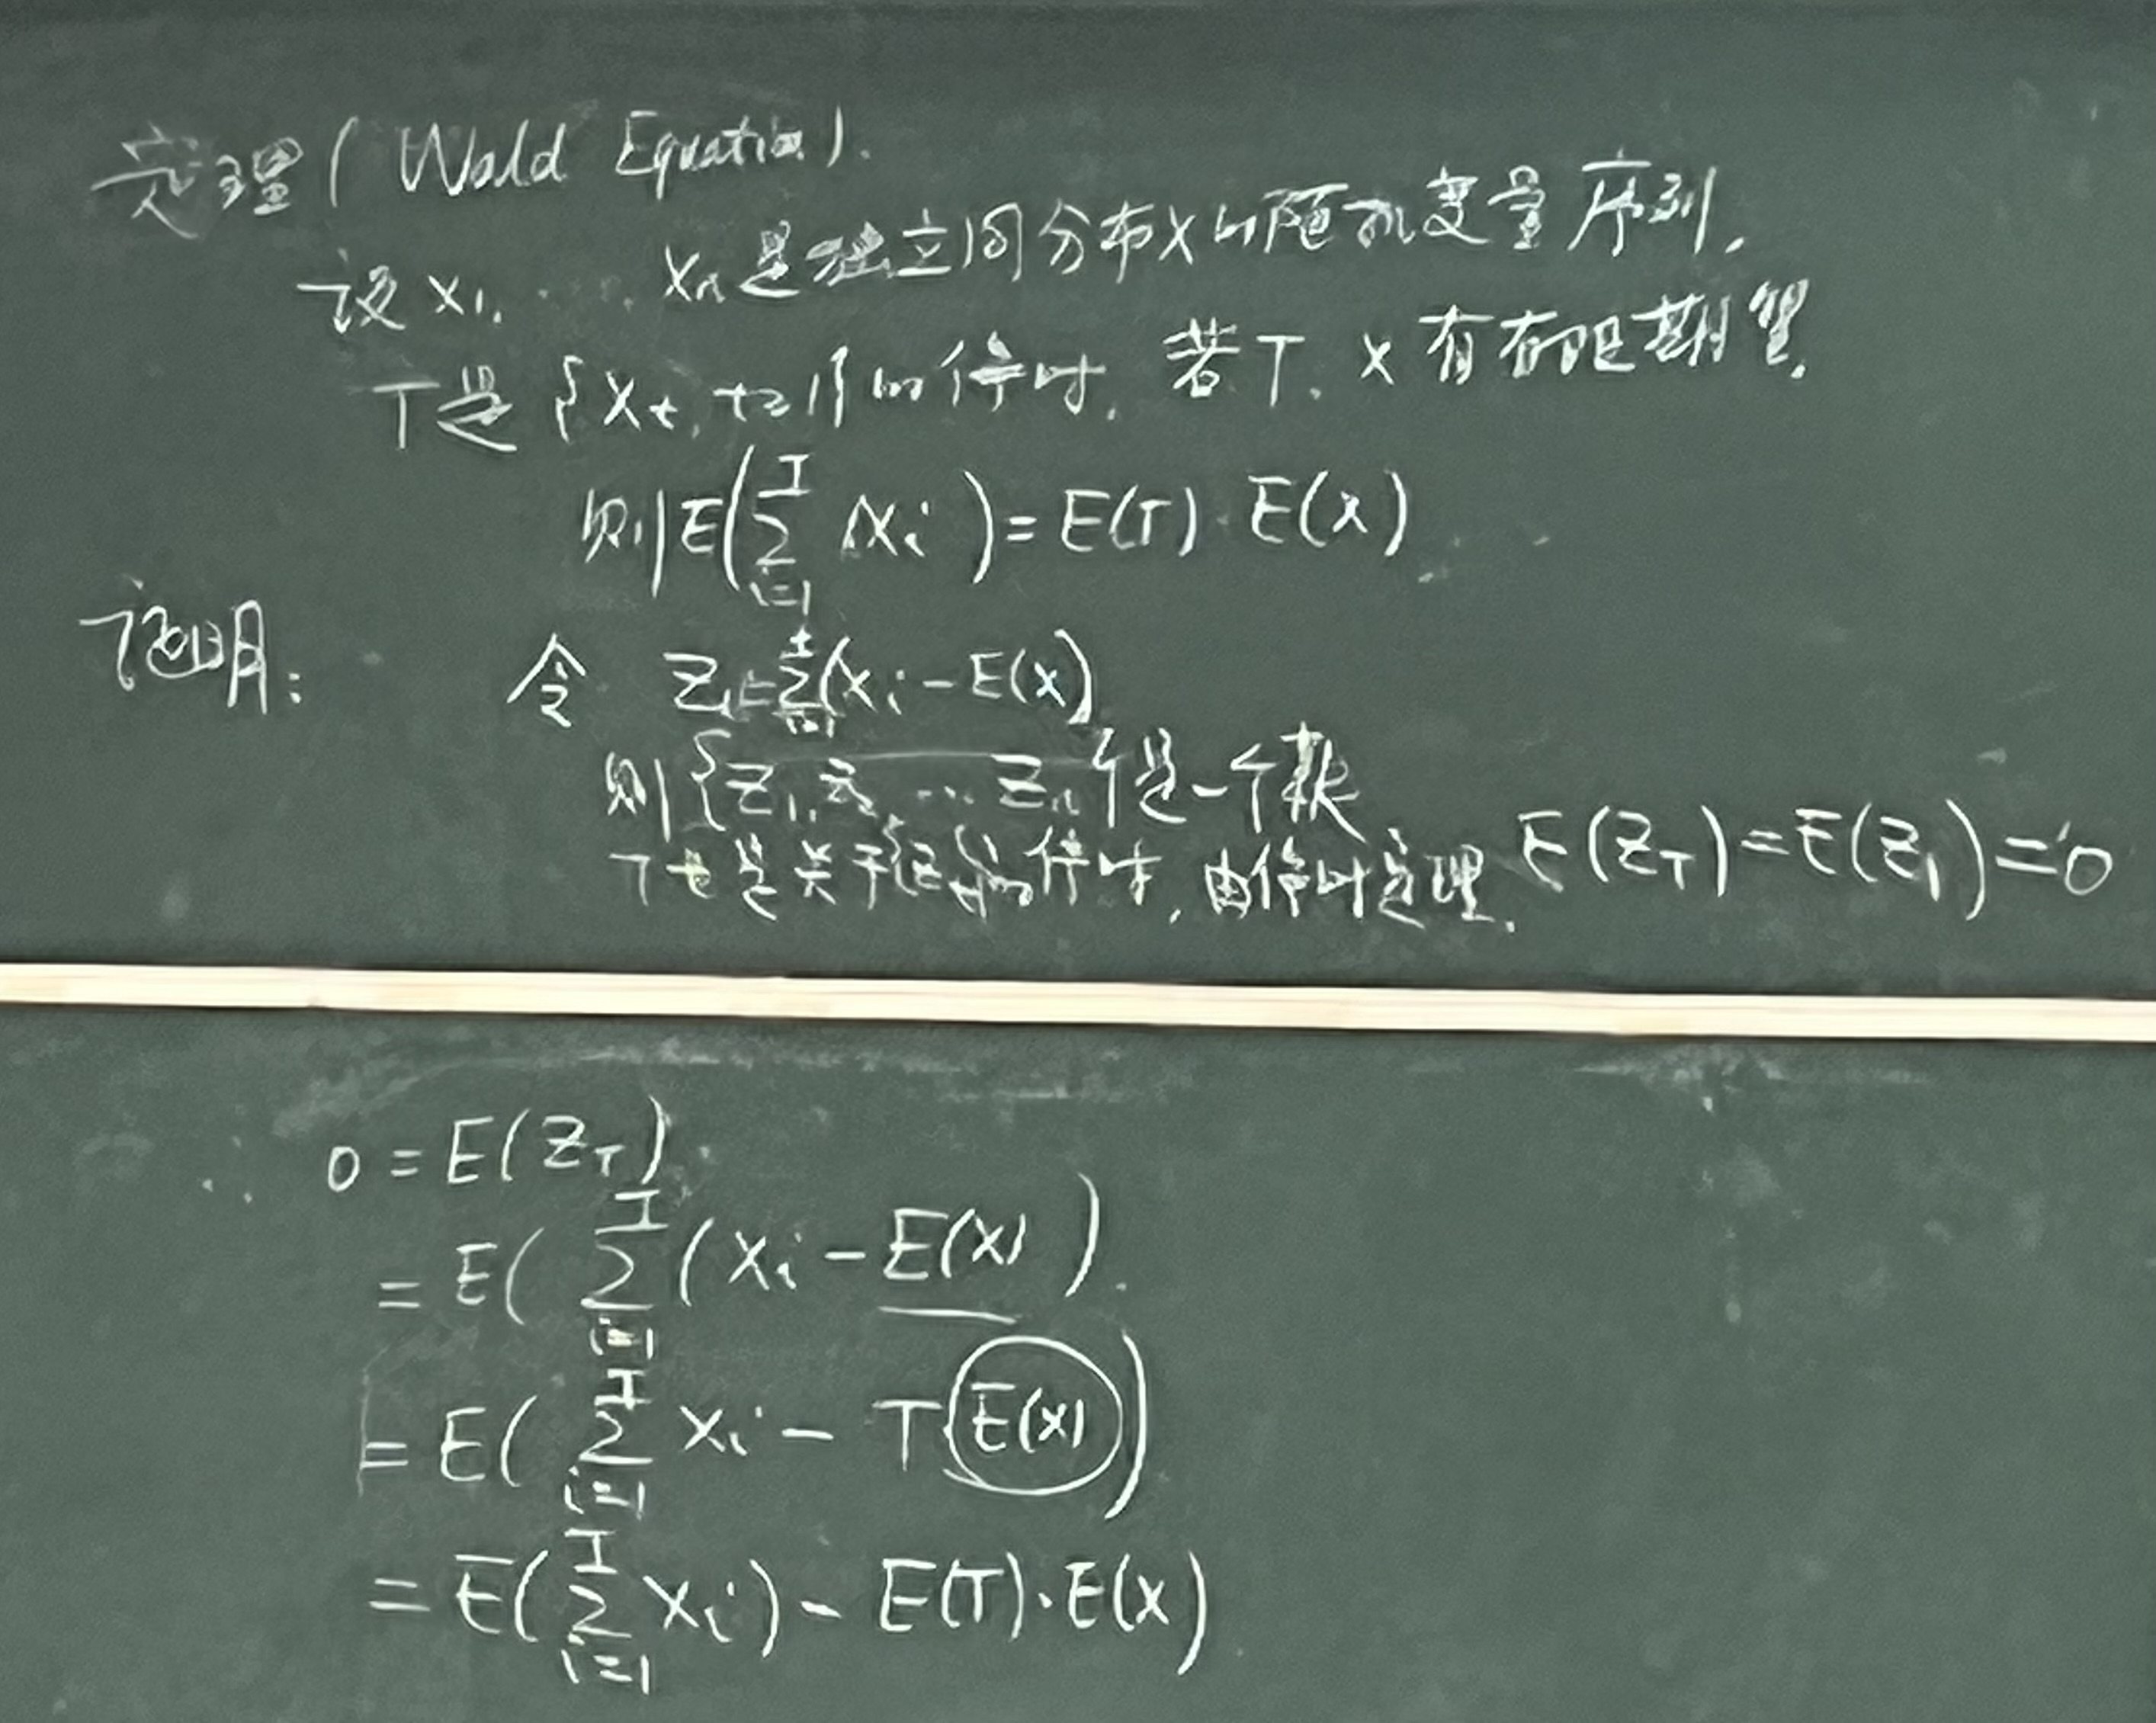 定理(Wald Equation).
设 X1, ... Xn是独立同分布X的随机变量序列,
T是{Xt, t≥1}的停时, 若T, X有有限期望,
则E(∑_{i=1}^{T} Xi) = E(T)·E(X)
证明: 令 Zt=∑_{i=1}^{t}(Xi-E(X))
则{Z1, Z2, ... Zn}是一个鞅
T也是关于{Zt}的停时, 由停时定理, E(ZT)=E(Z1)=0
0 = E(ZT)
= E(∑_{i=1}^{T}(Xi - E(X)).
= E(∑_{i=1}^{T} Xi - T E(X))
= E(∑_{i=1}^{T} Xi) - E(T)·E(X)